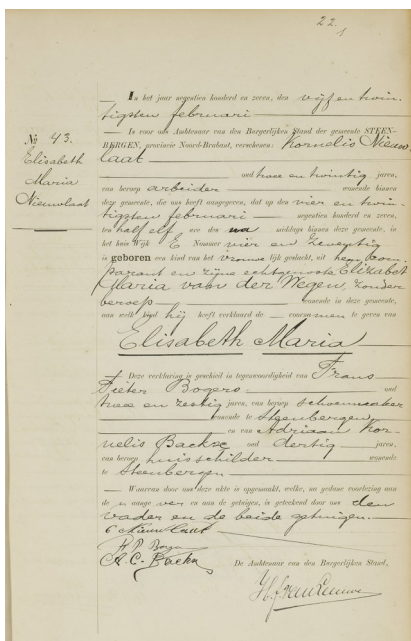 22.
In het jaar negentien honderd en zeven, den vijf en twin-
tigsten februari
Is voor ons Ambtenaar van den Burgerlijken Stand der gemeente STEEN-
BERGEN, provincie Noord-Brabant, verschenen: Kornelis Nieuw
laat
No 43.
Elisabeth
Maria
Nieuwlaat
oud twee en twintig jaren,
van beroep arbeider wonende binnen
deze gemeente, die ons heeft aangegeven, dat op den vier en twin-
tigsten februari negentien honderd en zeven,
ten half elf ure des na middags binnen deze gemeente, in
het huis Wijk E Nummer vier en zeventig
is geboren een kind van het vrouwe lijk geslacht, uit hem com-
parant en zijne echtgenoote Elizabet
Maria van der Wegen, zonder
beroep wonende in deze gemeente,
aan welk kind hij heeft verklaard de voornamen te geven van
Elisabeth Maria
Deze verklaring is geschied in tegenwoordigheid van Frans
Pieter Bogers oud
twee en zestig jaren, van beroep schoenmaker
wonende te Steenbergen
en van Adriaan Kor-
nelis Backx oud dertig jaren,
van beroep huisschilder wonende
te Steenbergen
Waarvan door ons deze akte is opgemaakt, welke, na gedane voorlezing aan
de n aange ver en aan de getuigen, is geteekend door ons den
vader en de beide getuigen.
C Nieuwlaat
A. C. Backx
De Ambtenaar van den Burgerlijken Stand,